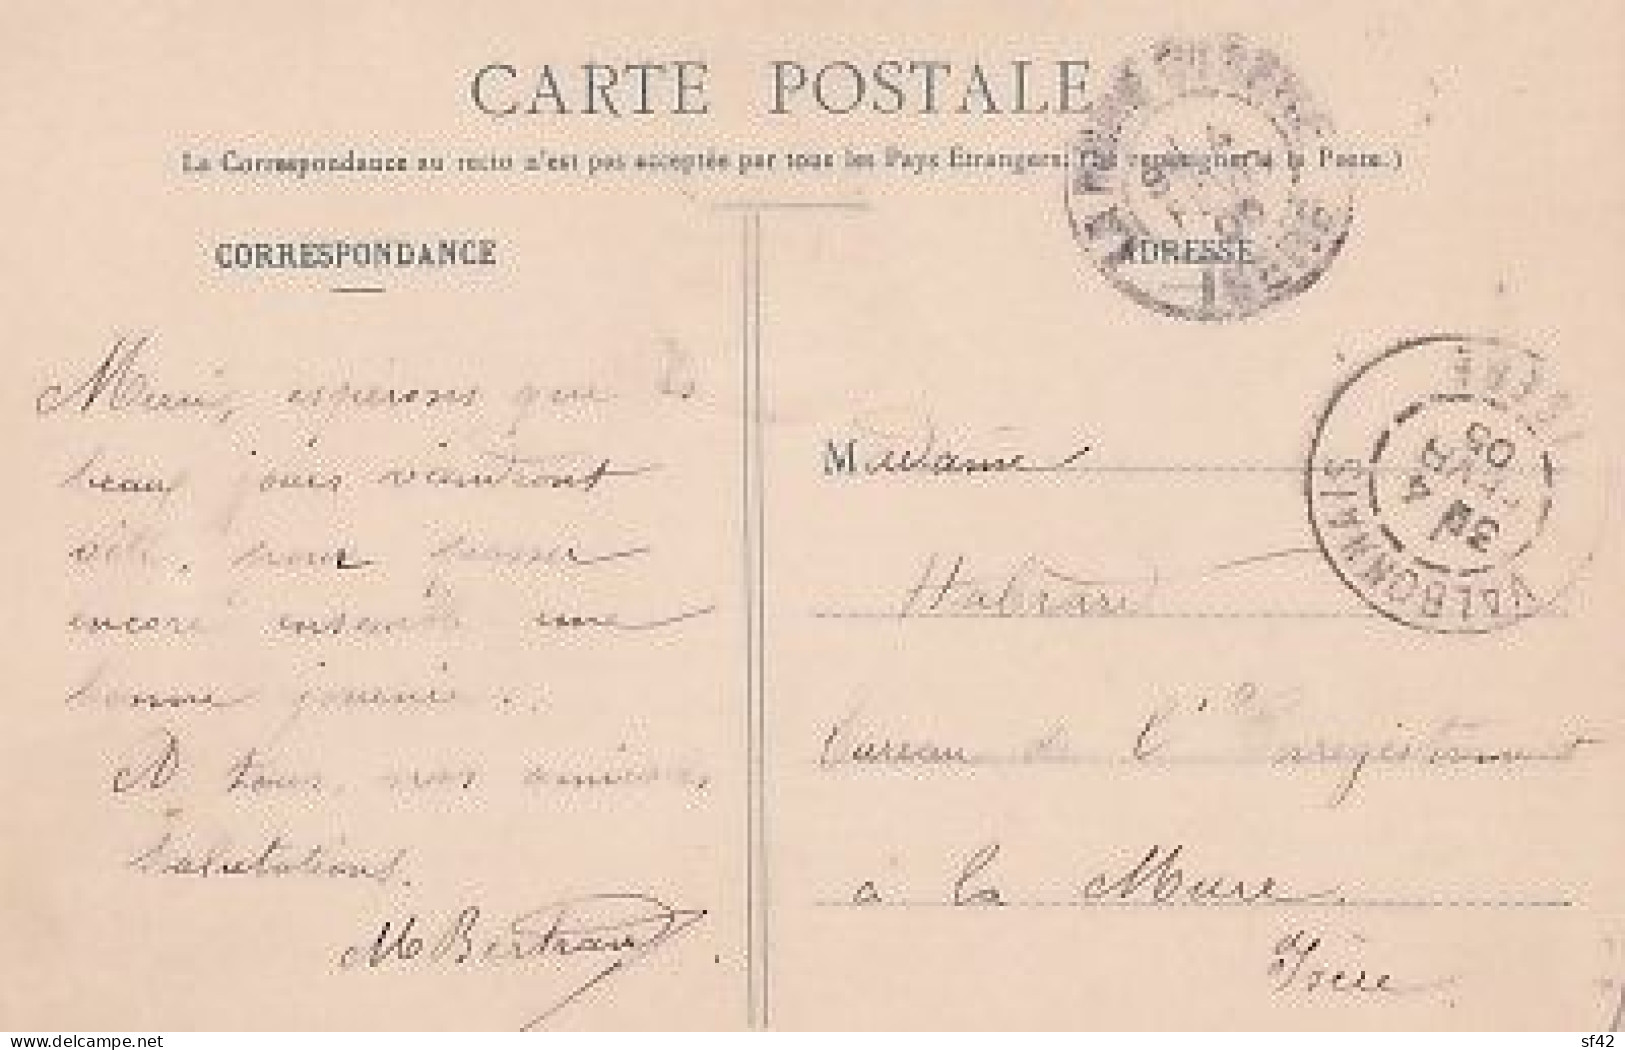 CARTE POSTALE
La Correspondance au recto n'est pas acceptée par tous les Pays Etrangers. (Se renseigner à la Poste.)
CORRESPONDANCE
ADRESSE
Merci, espérons que les
beaux jours viendront
vite, pour passer
encore ensemble une
bonne journée.
A tous, nos amicales
Salutations.
M Bertrand
Madame
bureau de l'Enregistrement
à la Mure
Isère
VALBONNAIS
ISÈRE
delcampe.net
sf42